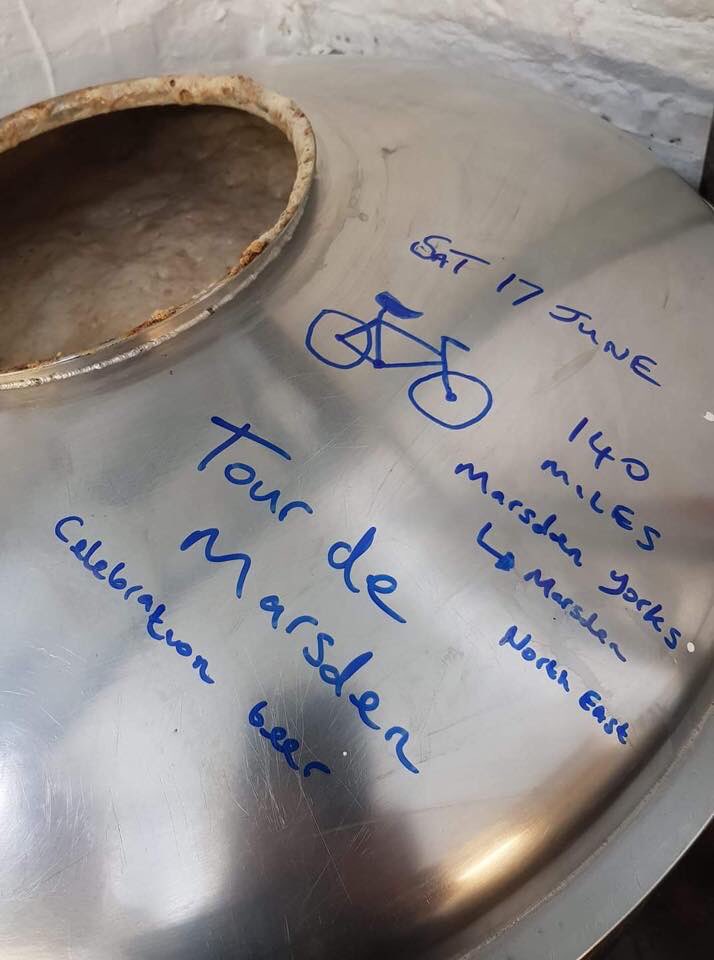 SAT 17 JUNE
140
MILES
Marsden Yorks.
↳ Marsden
North East
Tour de
Marsden
Celebration beer